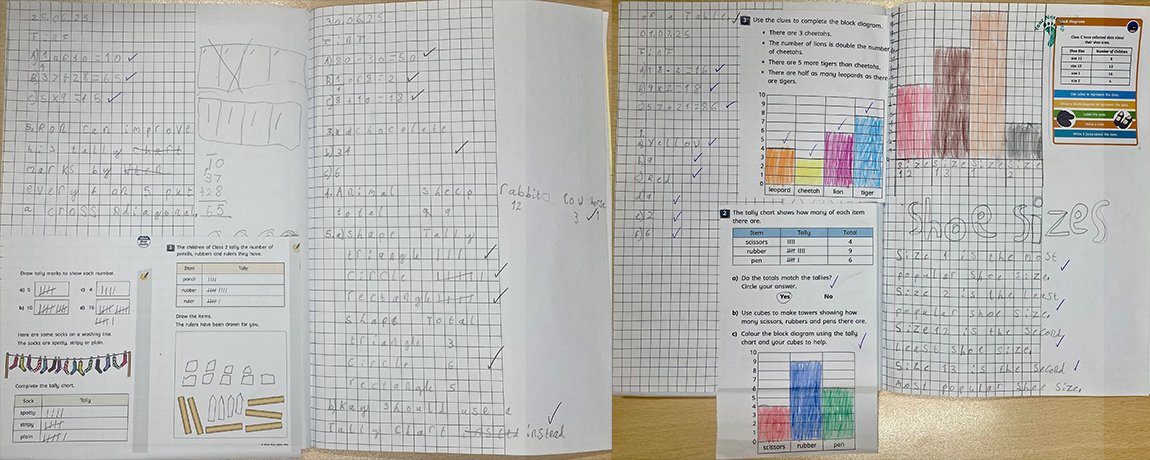 25.06.25
FiRF
A) 1 of 10 = 10
B) 37 + 28 = 65
C) 5 x 9 = 45
5. Ron can improve
his tally
marks by
every
a cross
10
37
+28
65
Draw tally marks to show each number.
a) 5
c) 4
b) 10
d) 16
Here are some socks on a washing line.
The socks are spotty, stripy or plain.
Complete the tally chart.
Sock Tally
spotty
stripy
plain
3 The children of Class 2 tally the number of
pencils, rubbers and rulers they have.
Item Tally
pencil
rubber
ruler
Draw the items.
The rulers have been drawn for you.
30.06.25
FiRF
3. a) chocolate
c) 6
4. Animal sheep rabbit cow horse
total 12 3 1
5. a) Shape Tally
triangle
circle
rectangle
Shape Total
triangle 3
circle 6
rectangle 5
b) Kay should use a
tally chart instead
of a table
01.07.25
FiRF
A) 18 - 2 = 16
B) 9 x 2 = 18
1.
a) Yellow
b) 9
c) Red
d) 9
e) 2
f) 6
3 Use the clues to complete the block diagram.
• There are 3 cheetahs.
• The number of lions is double the number
of cheetahs.
• There are 5 more tigers than cheetahs.
• There are half as many leopards as there
are tigers.
10
9
8
7
6
5
4
3
2
1
0
leopard cheetah lion tiger
2 The tally chart shows how many of each item
there are.
Item Tally Total
scissors 4
rubber 9
pen 6
a) Do the totals match the tallies?
Circle your answer.
Yes No
b) Use cubes to make towers showing how
many scissors, rubbers and pens there are.
c) Colour the block diagram using the tally
chart and your cubes to help.
10
9
8
7
6
5
4
3
2
1
0
scissors rubber pen
Size 12 Size 13 Size 1 Size 2
Block diagrams
Class C have collected data about
their shoe sizes.
Shoe Size Number of Children
size 12 8
size 13 12
size 1
size 2 4
Use cubes to represent the data.
Draw a block diagram to represent the data.
Label the axes
Write a title
Write 3 facts about the data.
Shoe Sizes
Size 1 is the most
popular shoe size.
Size 2 is the least
popular shoe size.
Size 12 is the second
least shoe size.
Size 13 is the second
most popular shoe size.